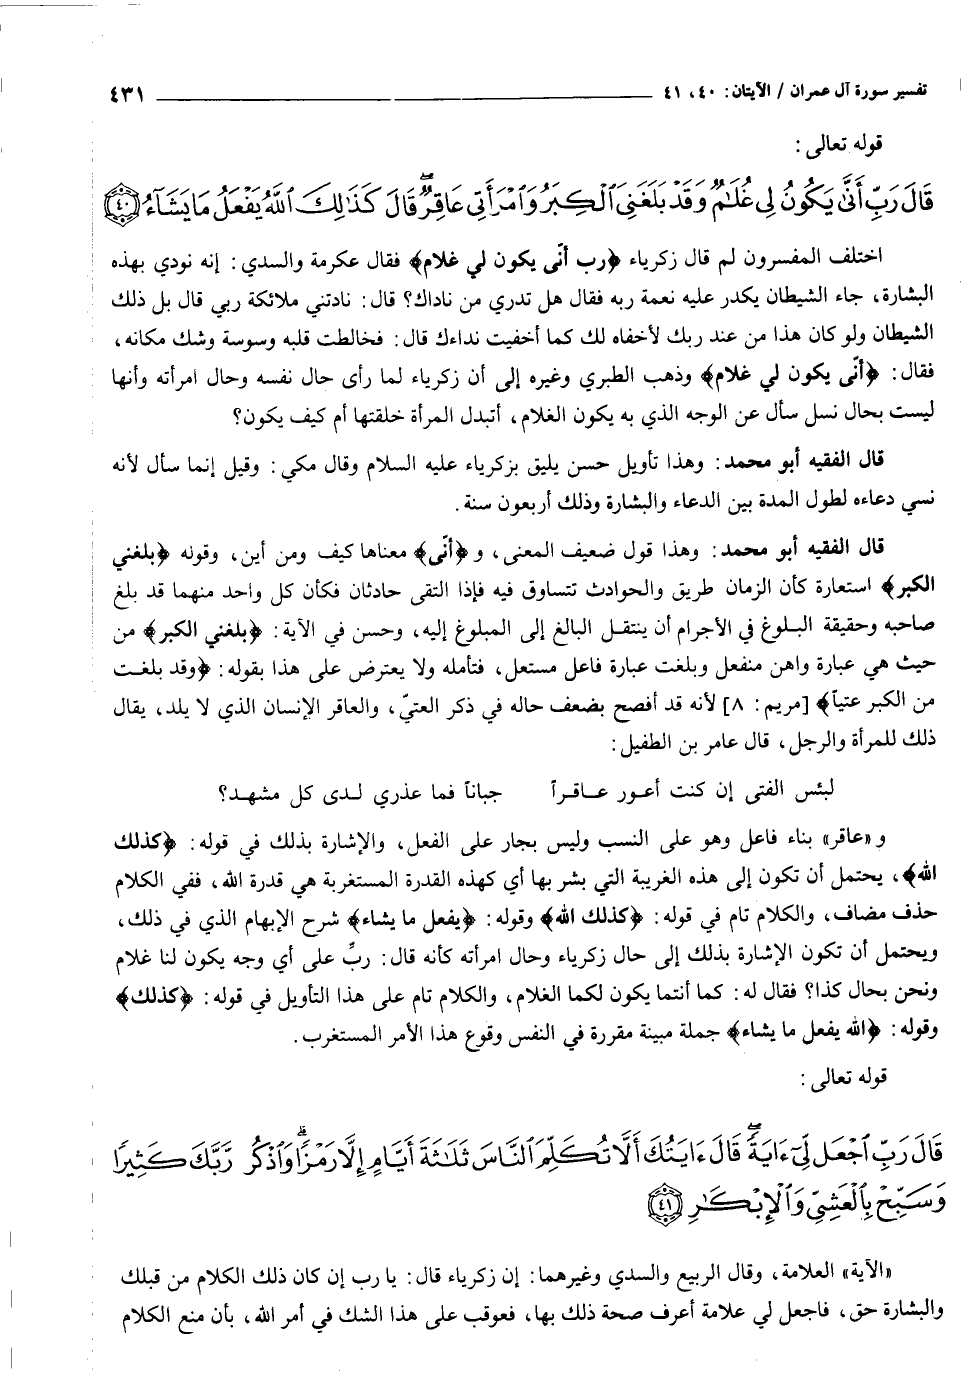 تفسير سورة آل عمران / الآيتان: ٤٠، ٤١ ٤٣١
قوله تعالى:
قَالَ رَبِّ أَنَّىٰ يَكُونُ لِي غُلَٰمٌ وَقَدْ بَلَغَنِيَ ٱلْكِبَرُ وَٱمْرَأَتِي عَاقِرٌ ۖ قَالَ كَذَٰلِكَ ٱللَّهُ يَفْعَلُ مَا يَشَآءُ ٤٠
اختلف المفسرون لم قال زكرياء ﴿رب أنّى يكون لي غلام﴾ فقال عكرمة والسدي: إنه نودي بهذه
البشارة، جاء الشيطان يكدر عليه نعمة ربه فقال هل تدري من ناداك؟ قال: نادتني ملائكة ربي قال بل ذلك
الشيطان ولو كان هذا من عند ربك لأخفاه لك كما أخفيت نداءك قال: فخالطت قلبه وسوسة وشك مكانه،
فقال: ﴿أنّى يكون لي غلام﴾ وذهب الطبري وغيره إلى أن زكرياء لما رأى حال نفسه وحال امرأته وأنها
ليست بحال نسل سأل عن الوجه الذي به يكون الغلام، أتبدل المرأة خلقتها أم كيف يكون؟
قال الفقيه أبو محمد: وهذا تأويل حسن يليق بزكرياء عليه السلام وقال مكي: وقيل إنما سأل لأنه
نسي دعاءه لطول المدة بين الدعاء والبشارة وذلك أربعون سنة.
قال الفقيه أبو محمد: وهذا قول ضعيف المعنى، و﴿أنّى﴾ معناها كيف ومن أين، وقوله ﴿بلغني
الكبر﴾ استعارة كأن الزمان طريق والحوادث تتساوق فيه فإذا التقى حادثان فكأن كل واحد منهما قد بلغ
صاحبه وحقيقة البلوغ في الأجرام أن ينتقل البالغ إلى المبلوغ إليه، وحسن في الآية: ﴿بلغني الكبر﴾ من
حيث هي عبارة واهن منفعل وبلغت عبارة فاعل مستعل، فتأمله ولا يعترض على هذا بقوله: ﴿وقد بلغت
من الكبر عتياً﴾ [مريم: ٨] لأنه قد أفصح بضعف حاله في ذكر العتيّ، والعاقر الإنسان الذي لا يلد، يقال
ذلك للمرأة والرجل، قال عامر بن الطفيل:
لبئس الفتى إن كنت أعور عاقراً جباناً فما عذري لدى كل مشهد؟
و«عاقر» بناء فاعل وهو على النسب وليس بجار على الفعل، والإشارة بذلك في قوله: ﴿كذلك
الله﴾، يحتمل أن تكون إلى هذه الغريبة التي بشر بها أي كهذه القدرة المستغربة هي قدرة الله، ففي الكلام
حذف مضاف، والكلام تام في قوله: ﴿كذلك الله﴾ وقوله: ﴿يفعل ما يشاء﴾ شرح الإبهام الذي في ذلك،
ويحتمل أن تكون الإشارة بذلك إلى حال زكرياء وحال امرأته كأنه قال: ربِّ على أي وجه يكون لنا غلام
ونحن بحال كذا؟ فقال له: كما أنتما يكون لكما الغلام، والكلام تام على هذا التأويل في قوله: ﴿كذلك﴾
وقوله: ﴿الله يفعل ما يشاء﴾ جملة مبينة مقررة في النفس وقوع هذا الأمر المستغرب.
قوله تعالى:
قَالَ رَبِّ ٱجْعَل لِّيٓ ءَايَةً ۖ قَالَ ءَايَتُكَ أَلَّا تُكَلِّمَ ٱلنَّاسَ ثَلَٰثَةَ أَيَّامٍ إِلَّا رَمْزًا ۗ وَٱذْكُر رَّبَّكَ كَثِيرًا
وَسَبِّحْ بِٱلْعَشِيِّ وَٱلْإِبْكَٰرِ ٤١
«الآية» العلامة، وقال الربيع والسدي وغيرهما: إن زكرياء قال: يا رب إن كان ذلك الكلام من قبلك
والبشارة حق، فاجعل لي علامة أعرف صحة ذلك بها، فعوقب على هذا الشك في أمر الله، بأن منع الكلام